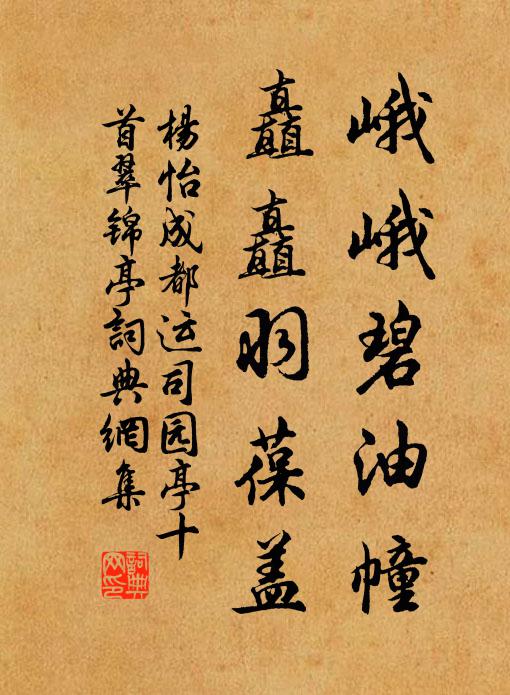 峨峨碧油幢
矗矗羽葆盖
楊怡成都运司园亭十
首翠锦亭詞典網集
詞典网印